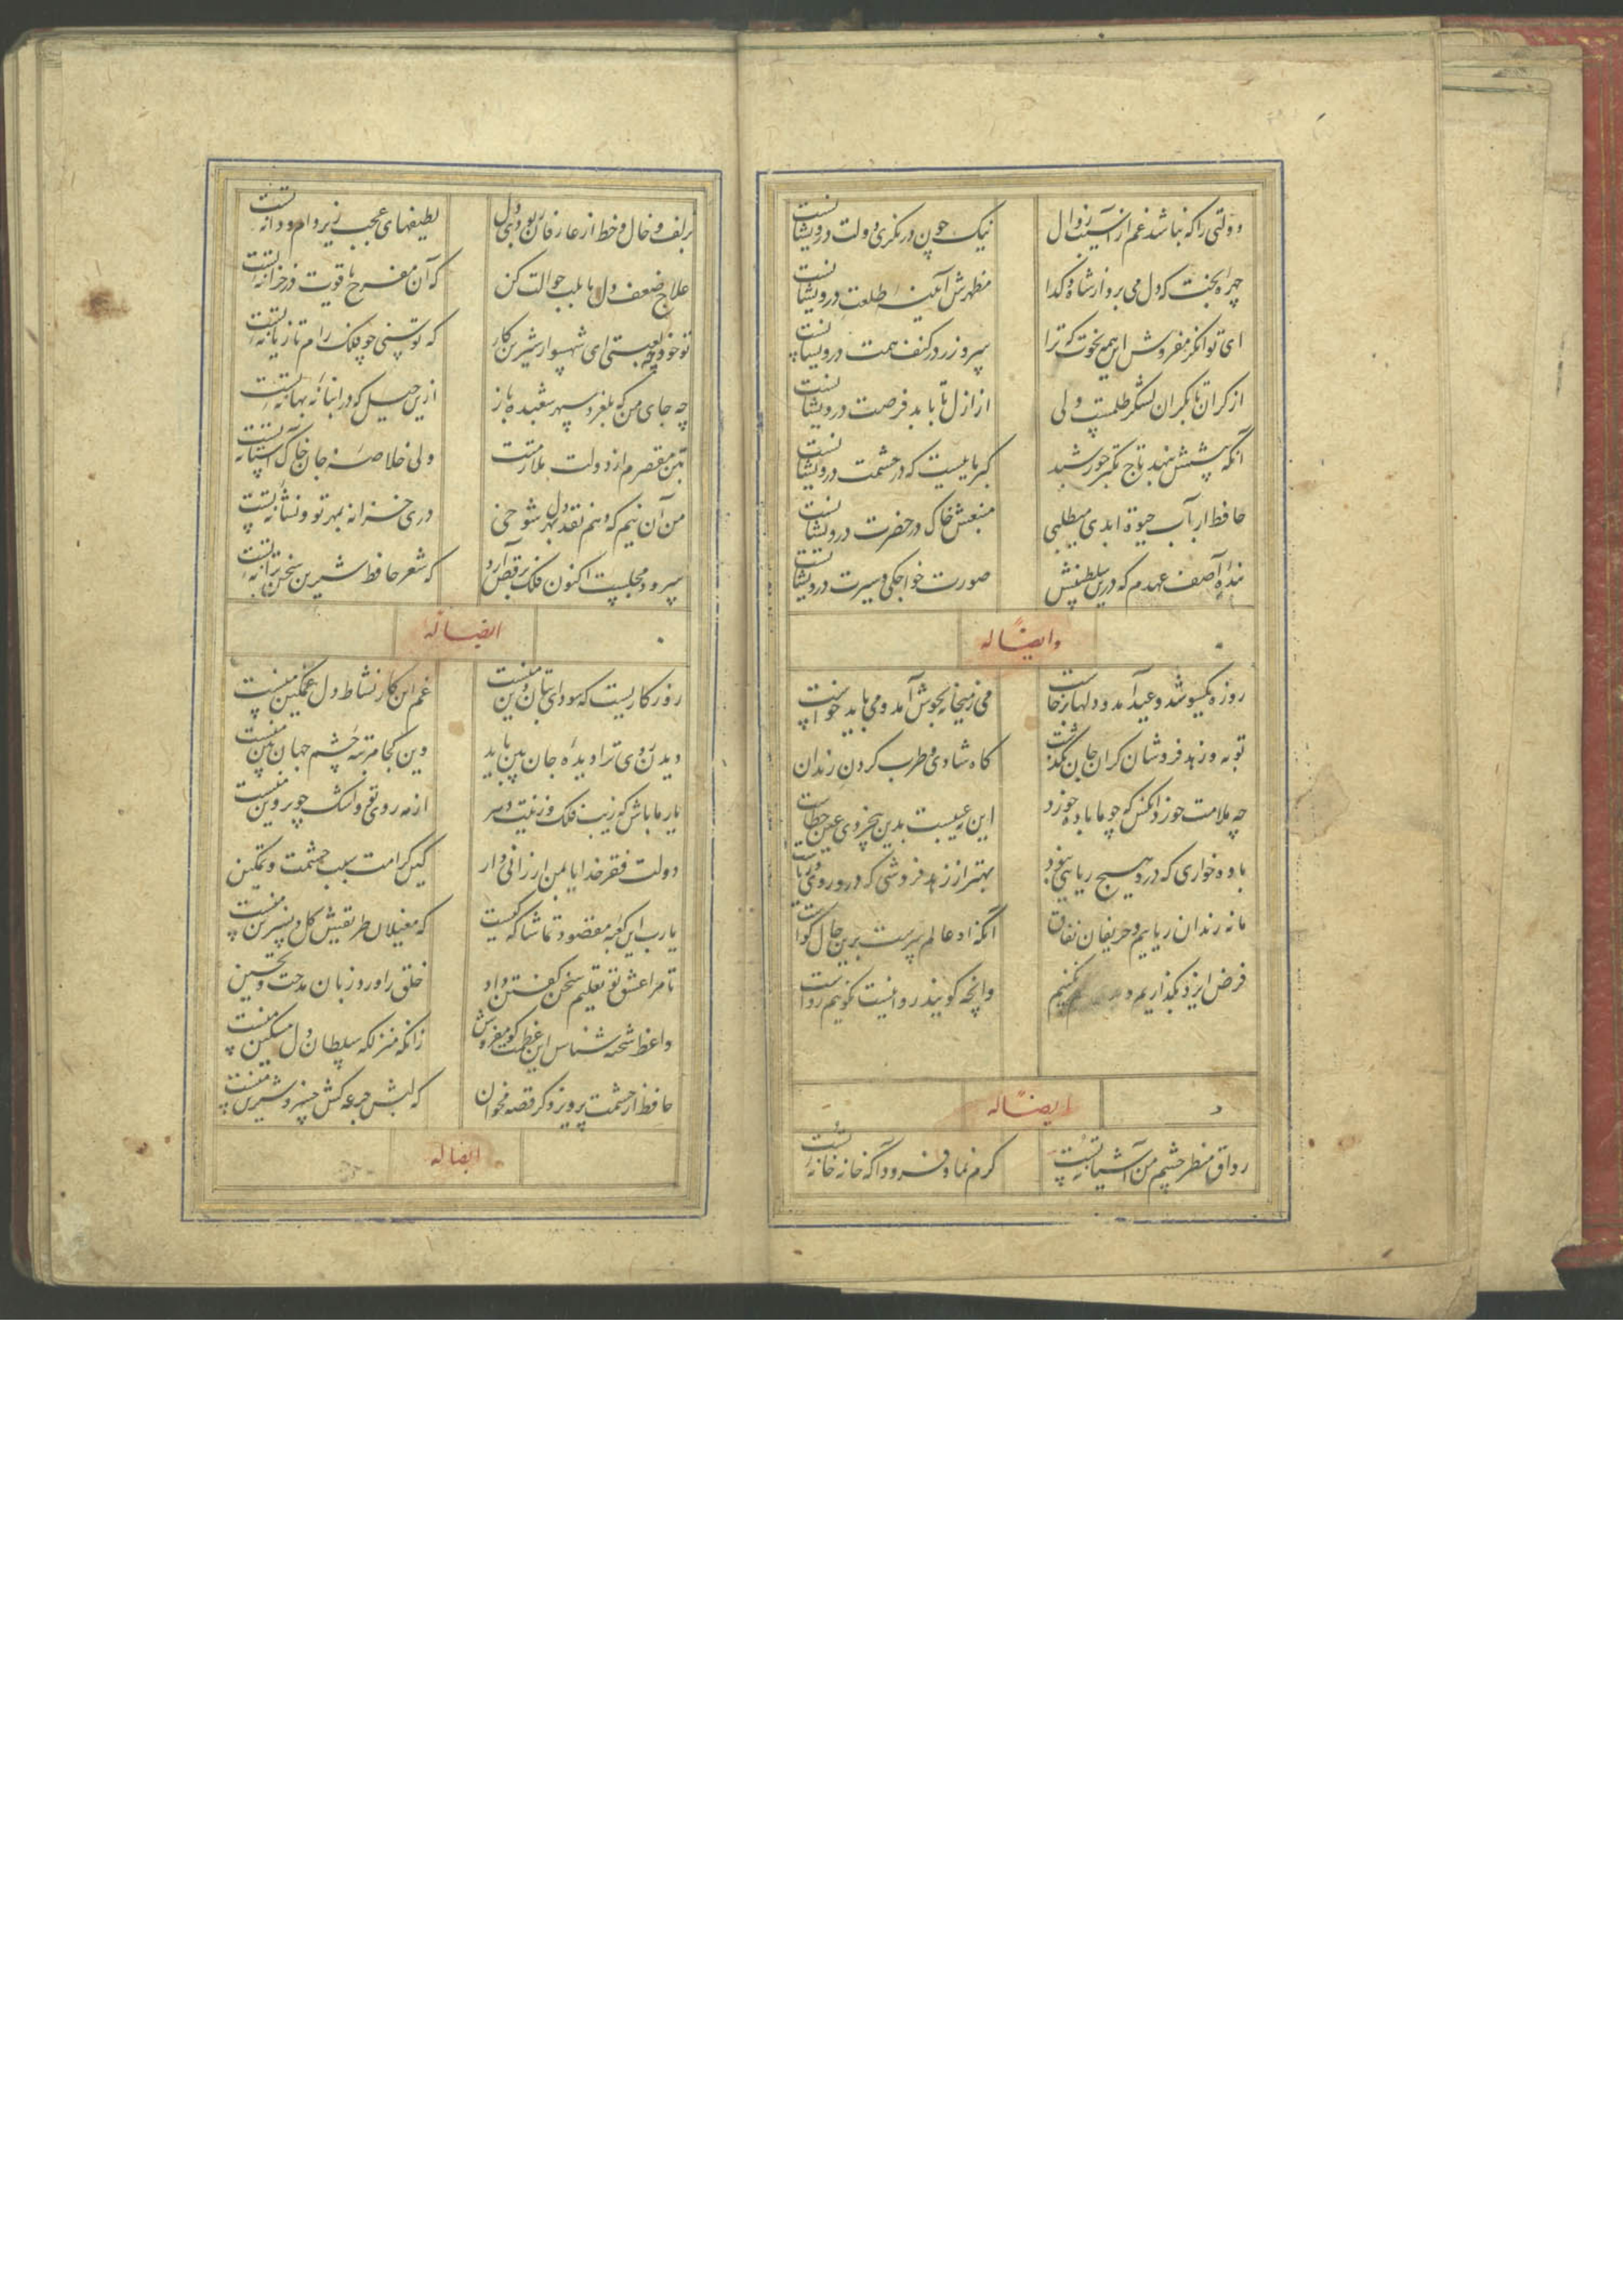 دولتی را که نباشد غم از آسیب زوال نیک چون درنکری دولت درویشانست
چهرهٔ بخت که دل می برد از شاه و کدا مظهرش آینهٔ طلعت درویشانست
ای توانکر مفروش این همه نخوت که ترا سر و زر در کنف همت درویشانست
از کران تا بکران لشکر ظلمست ولی از ازل تا بابد فرصت درویشانست
آنکه پیشش بنهد تاج تکبر خورشید کبریاییست که در حشمت درویشانست
حافظ ار آب حیوة ابدی میطلبی منبعش خاک در حضرت درویشانست
بندهٔ آصف عهدم که درین سلطنتش صورت خواجکی و سیرت درویشانست
وایضاً له
روزه یکسو شد و عید آمد و دلها برخاست می ز میخانه بجوش آمد و می باید خواست
توبه و زهد فروشان کران جان بکذشت کاه شادی و طرب کردن رندان
چه ملامت خورد آنکس که چو ما باده خورد این نه عیبست بدین بیخردی عین خطاست
باده خواری که درو هیچ ریایی نبود بهتر از زهد فروشی که درو روی و ریاست
ما نه رندان ریاییم و حریفان نفاق آنکه او عالم سرست برین حال کواست
فرض ایزد بکذاریم و نکنیم وانچه کویند روا نیست نکوییم رواست
ایضاً له
رواق منظر چشم من آشیانهٔ تست کرم نما و فرود آ که خانه خانهٔ تست
بزلف و خال و خط از عارفان ربودی دل لطیفهای عجب زیر دام و دانهٔ تست
علاج ضعف دل ما بلب حوالت کن که آن مفرح یاقوت در خزانهٔ تست
تو خود چه لعبتی ای شهسوار شیرین کار که توسنی چو فلک رام تازیانهٔ تست
چه جای من که بلغزد سپهر شعبده باز ازین حیل که در انبانهٔ بهانهٔ تست
بتن مقصرم از دولت ملازمت ولی خلاصهٔ جان خاک آستانهٔ تست
من آن نیم که دهم نقد دل بهر شوخی در خزانه بمهر تو و نشانهٔ تست
سرود مجلست اکنون فلک برقص آرد که شعر حافظ شیرین سخن ترانهٔ تست
ایضاً له
روزکاریست که سودای بتان دین منست غم این کار نشاط دل غمکین منست
دیدن روی ترا دیدهٔ جان بین باید وین کجا مرتبهٔ چشم جهان بین منست
یار ما باش که زیب فلک و زینت دهر از مه روی تو و اشک چو پروین منست
دولت فقر خدایا بمن ارزانی دار کین کرامت سبب حشمت و تمکین
یارب این کعبهٔ مقصود تماشاکه کیست که مغیلان طریقش کل و نسرین منست
تا مرا عشق تو تعلیم سخن کفتن داد خلق را ورد زبان مدحت و تحسین
واعظ شحنه شناس این عظمت کو مفروش زانکه منزلکه سلطان دل مسکین منست
حافظ از حشمت پرویز دکر قصه مخوان که لبش جرعه کش خسرو شیرین منست
ایضاً له